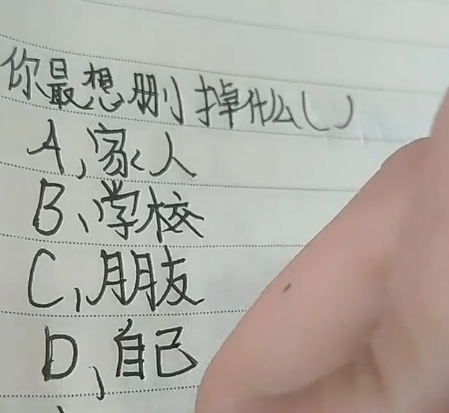 你最想删掉什么( )
A、家人
B、学校
C、朋友
D、自己